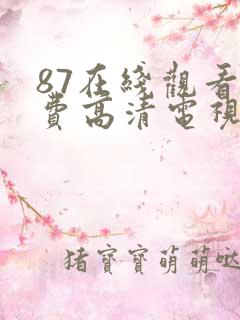 87在綫觀看
費高清電視
猪寶寶萌萌噠